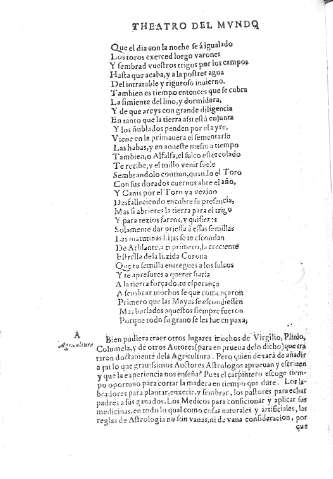 THEATRO DEL MVNDO
Que el dia con la noche se à igualado
Los toros exerced luego varones
Y sembrad vuestros trigos por los campos
Hasta que acaba, y a la postrer agua
Del intratable y riguroso inuierno.
Tambien es tiempo entonces que se cubra
La simiente del lino, y dormidera,
Y de que areys con grande diligencia
En tanto que la tierra assi està enjuta
Y los ñublados penden por el ayre,
Viene en la primauera el sementarlo
Las habas, y en aqueste mesmo tiempo
Tambien, o Alfalfa, el sulco
Te recibe, y el millo venir suele
Sembrandolo contino, quando el Toro
Con sus dorados cuernos abre el año,
Y Canis por el Toro ya vezino
Desfalleciendo encubre su presencia,
Mas si abrieres la tierra para el trigo
Y para rezios farros, y quisieres
Solamente dar orilla à estas semillas
Las matutinas hijas se te escondan
De Athlante, a ti primero, la
Estrella de la luzida Corona
Que tu semilla entregues a los sulcos
Y te apressures a querer fiarla
A la tierra forçado, tu esperança
A sembrar muchos se que començaron
Primero que las Mayas se escondiessen
Mas burlados aquestos siempre fueron
Porque todo su grano se les fue en paxa,
A
Agricultura
Bien pudiera traer otros lugares muchos de Virgilio, Plinio,
Columela, y de otros Autores (para en prueua de lo dicho) que tra
taron doctamente de la Agricultura. Pero quien deurà de añadir
a lo que grauissimos Auctores Astrologos aprueuan y escriuen
y que la experiencia nos enseña? Pues el carpintero escoge tiem-
po oportuno para cortar la madera en tiempo que dure. Los la-
bradores para plantar, enxerir, y sembrar, los pastores para echar
padres a sus ganados. Los Medicos para conficionar y aplicar sus
medicinas, en todo lo qual como cosas naturales y artificiales, las
reglas de Astrologia no son vanas, ni de vana consideracion, por
que